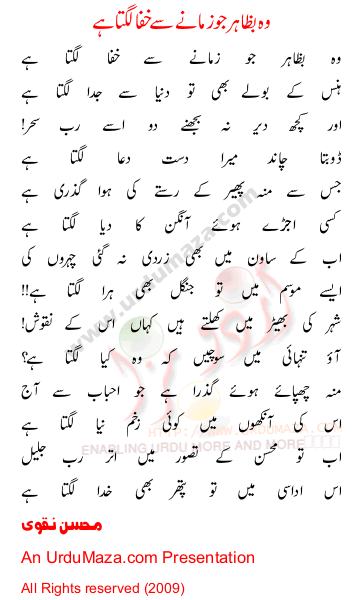 وہ بظاہر جو زمانے سے خفا لگتا ہے
وہ بظاہر جو زمانے سے خفا لگتا ہے
ہنس کے بولے بھی تو دنیا سے جدا لگتا ہے
اور کچھ دیر نہ بجھنے دو اسے رب سحر!
ڈوبتا چاند میرا دست دعا لگتا ہے
جس سے منہ پھیر کے رستے کی ہوا گذری ہے
کسی اجڑے ہوئے آنگن کا دیا لگتا ہے
اب کے ساون میں بھی زردی نہ گئی چہروں کی
ایسے موسم میں تو جنگل بھی ہرا لگتا ہے!!
شہر کی بھیڑ میں کھلتے ہیں کہاں اس کے نقوش!
آؤ تنہائی میں سوچیں کہ وہ کیا لگتا ہے؟
منہ چھپائے ہوئے گذرا ہے جو احباب سے آج
اس کی آنکھوں میں کوئی زخم نیا لگتا ہے
اب تو محسن کے تصور میں اتر رب جلیل
اس اداسی میں تو پتھر بھی خدا لگتا ہے
محسن نقوی
An UrduMaza.com Presentation
All Rights reserved (2009)
www.urdumaza.com
ENABLING URDU MORE AND MORE